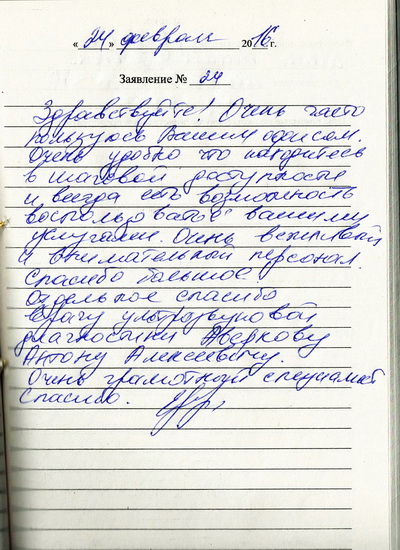 « 24 » февраля 2016 г.
Заявление № 24
Здравствуйте! Очень часто
пользуюсь Вашим офисом.
Очень удобно что находитесь
в шаговой доступности
и всегда есть возможность
воспользоваться вашими
услугами. Очень вежливый
и внимательный персонал.
Спасибо большое!
Отдельное спасибо
Врачу ультразвуковой
диагностики Аверкову
Антону Алексеевичу.
Очень грамотный специалист
Спасибо.